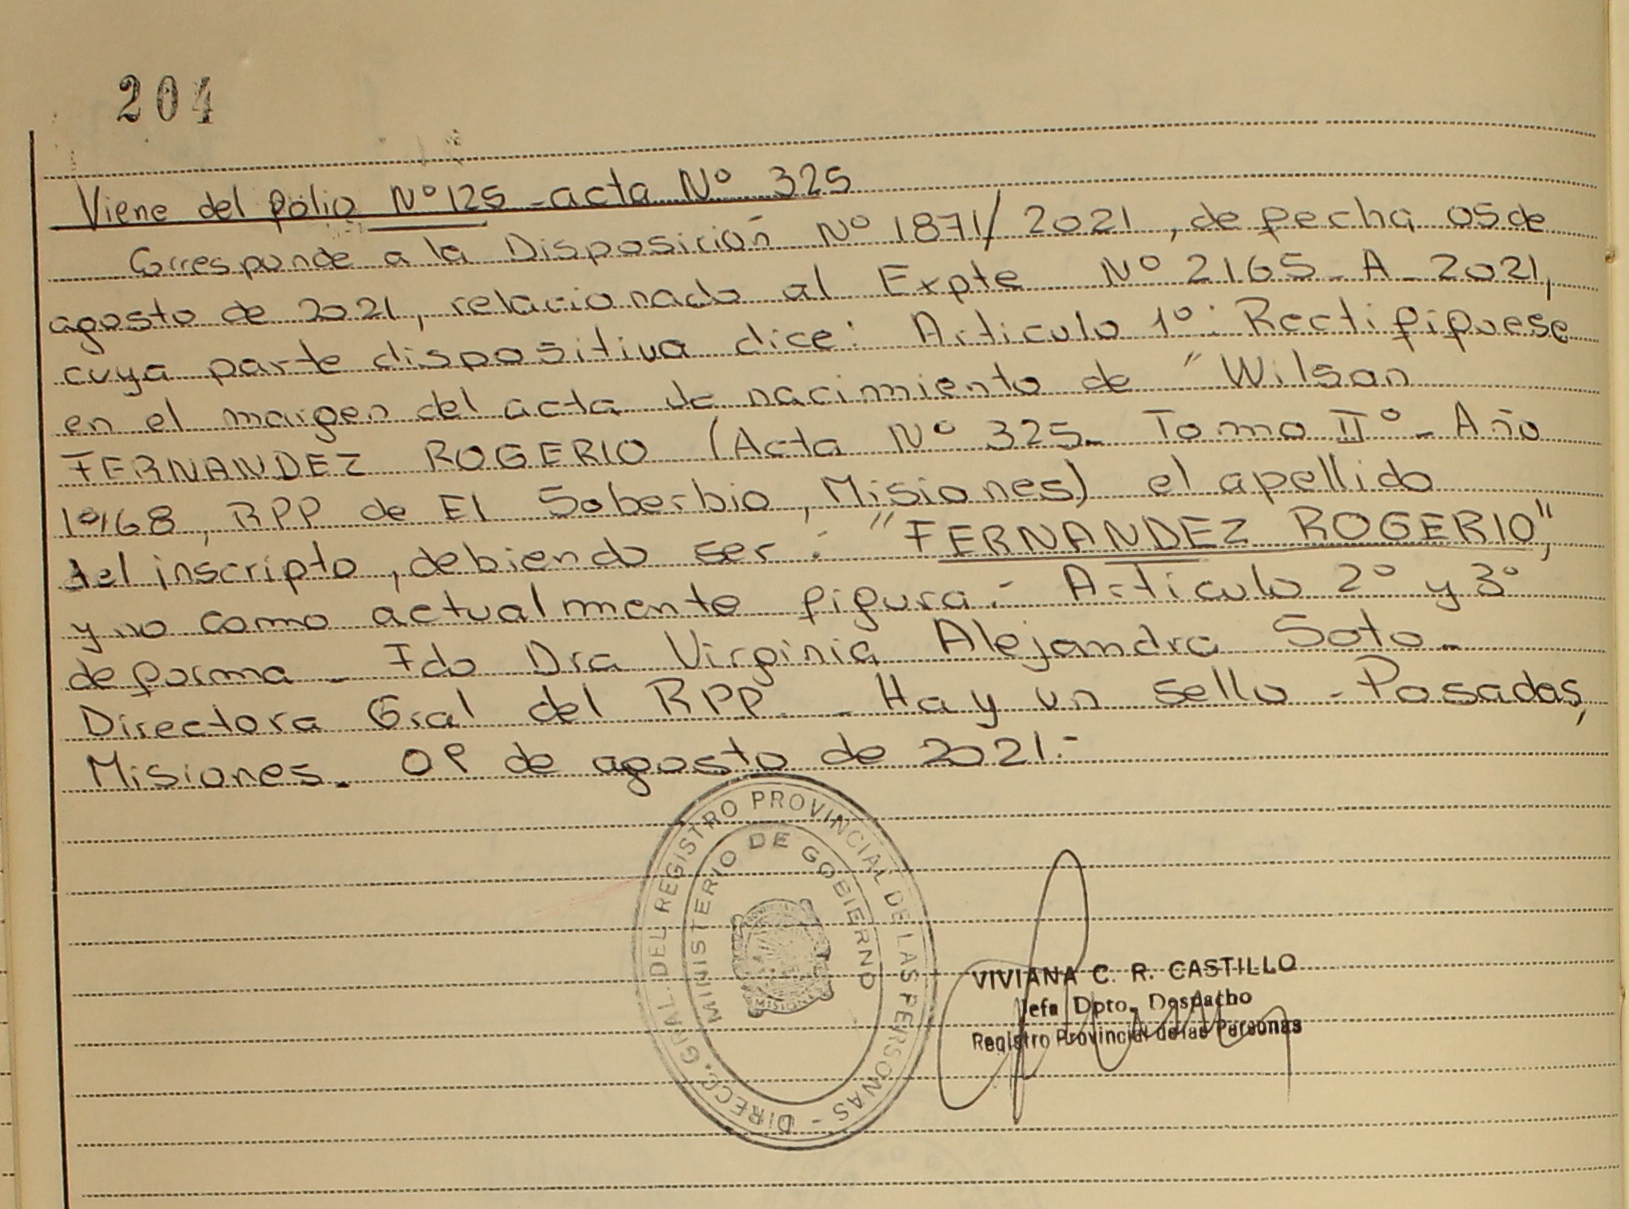 204
Viene del folio Nº 125 - acta Nº 325
Corresponde a la Disposición Nº 1871/2021, de fecha 05 de
agosto de 2021, relacionado al Expte Nº 2165 - A - 2021,
cuya parte dispositiva dice: Articulo 1º: Rectifiquese
en el margen del acta de nacimiento de "Wilson
FERNANDEZ ROGERIO (Acta Nº 325 - Tomo IIº - Año
1968, RPP de El Soberbio, Misiones) el apellido
del inscripto, debiendo ser: "FERNANDEZ ROGERIO",
y no como actualmente figura.- Articulo 2º y 3º
de forma - Fdo Dra Virginia Alejandra Soto -
Directora Gral del RPP - Hay un sello - Posadas,
Misiones - 09 de agosto de 2021.-
DIRECC. GRAL. DEL REGISTRO PROVINCIAL DE LAS PERSONAS -
MINISTERIO DE GOBIERNO
MISIONES
VIVIANA C. R. CASTILLO
Jefa Dpto. Despacho
Registro Provincial de las Personas